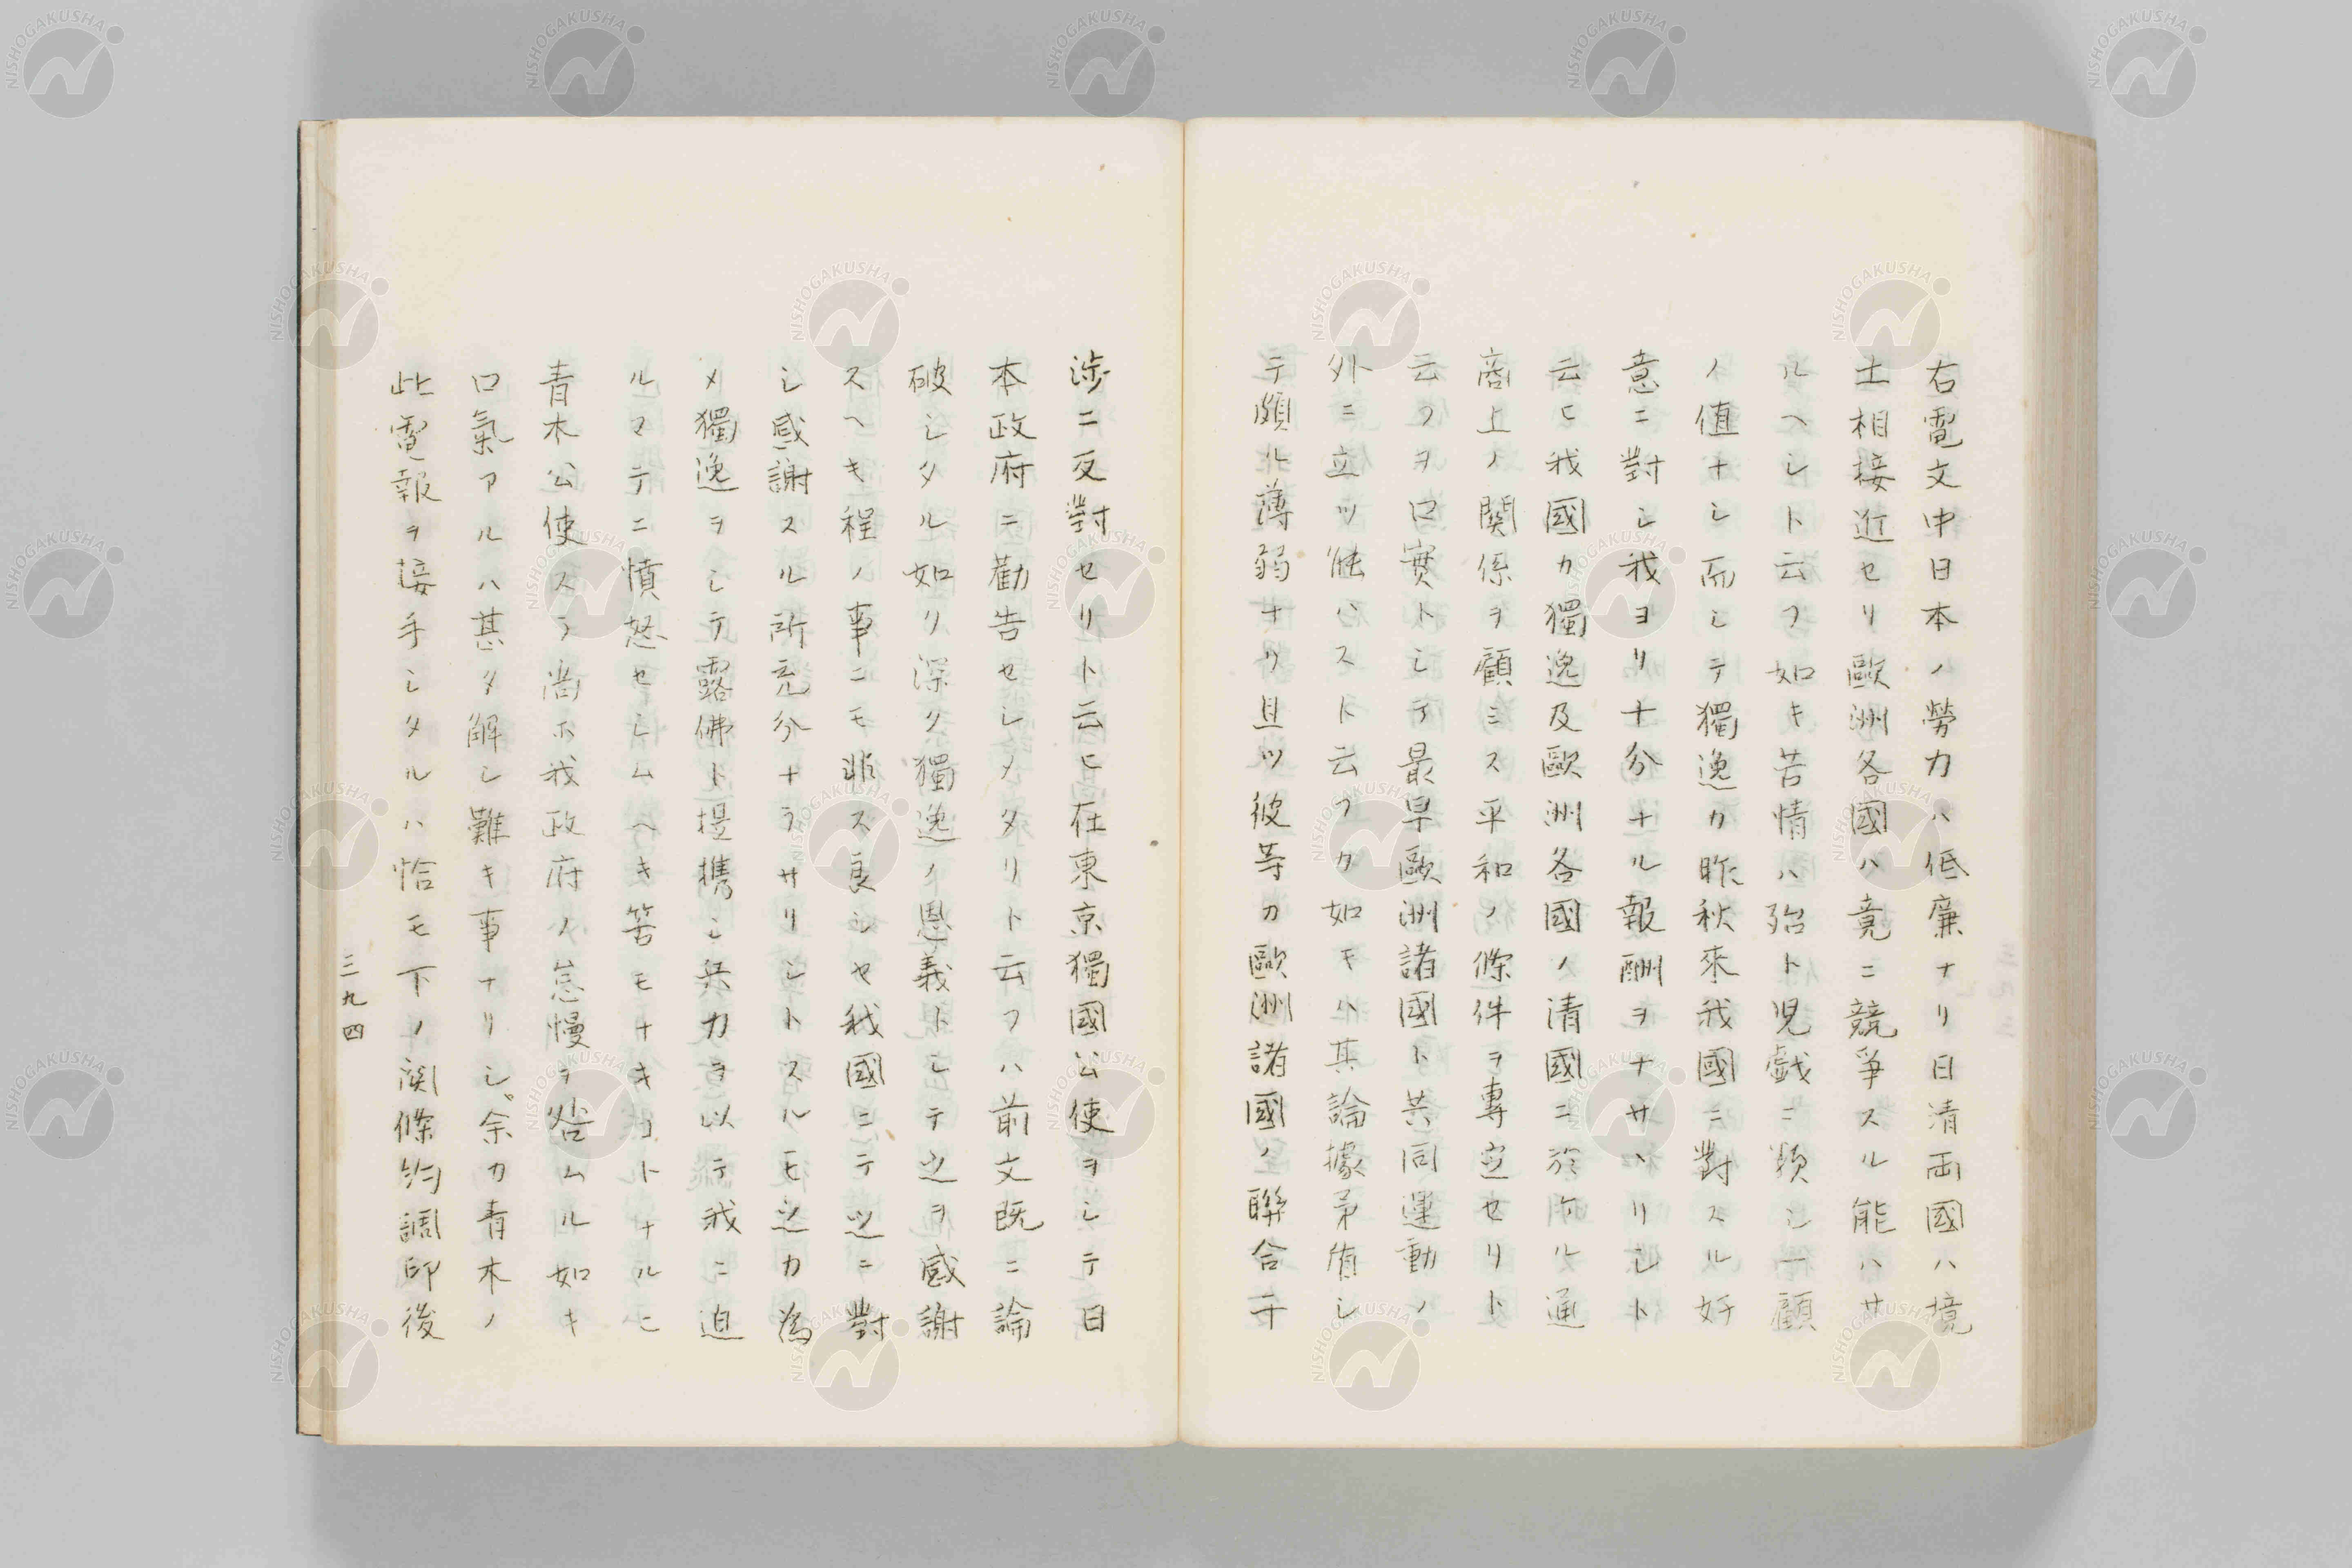 右電文中日本ノ勞力ハ低廉ナリ日清両國ハ境
土相接近セリ歐洲各國ハ竟ニ競爭スル能ハサ
ルヘシト云フ如キ苦情ハ殆ト児戯ニ類シ一顧
ノ値ナシ而シテ獨逸カ昨秋來我國ニ對スル好
意ニ對シ我ヨリ十分ナル報酬ヲナサヽリシト
云ヒ我國カ獨逸及歐洲各國ノ清國ニ於ケル通
商上ノ関係ヲ顧ミス平和ノ條件ヲ專定セリト
云フヲ口實トシテ最早歐洲諸國ト共同運動ノ
外ニ立ツ能ハスト云フカ如キハ其論據矛循シ
テ頗ル薄弱ナリ且ツ彼等カ歐洲諸國ノ聯合干
渉ニ反對セリト云ヒ在東京獨國公使ヲシテ日
本政府ニ勸告セシメタリト云フハ前文既ニ論
破シタル如リ深ク獨逸ノ恩義トシテ之ヲ感謝
スヘキ程ノ事ニモ非ス良シヤ我國ニテ之ニ對
シ感謝スル所充分ナラサリシトスルモ之カ為
メ獨逸ヲシテ露佛ト提携シ兵力ヲ以テ我ニ迫
ルマテニ憤怒セシムヘキ筈モナキコトナルニ
青木公使スラ尚ホ我政府ノ怠慢ヲ咎ムル如キ
口氣アルハ甚タ解シ難キ事ナリシ゜余カ青木ノ
此電報ヲ接手シタルハ恰モ下ノ関條約調印後
三九四
NISHOGAKUSHA